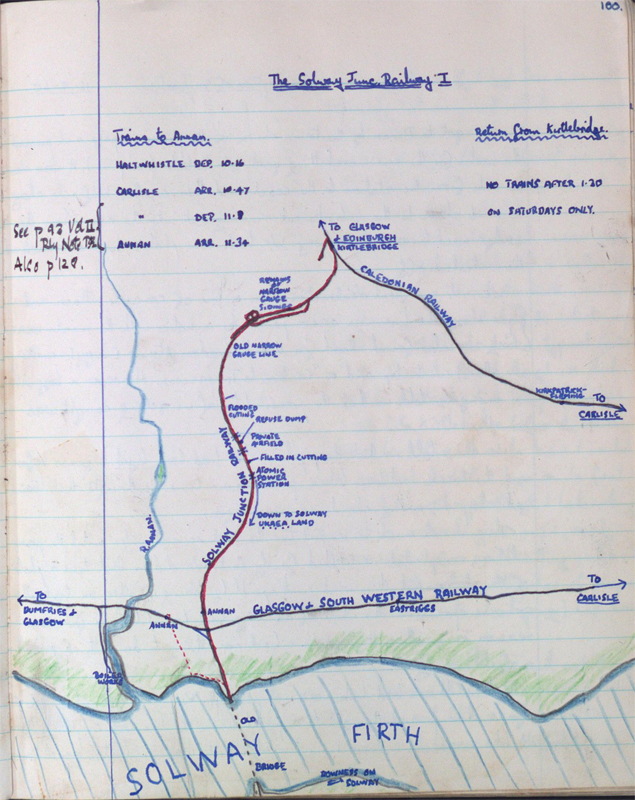 100.
The Solway Junc. Railway I
Trains to Annan.
HALTWHISTLE DEP. 10.16
CARLISLE ARR. 10.47
" DEP. 11.8
ANNAN ARR. 11.34
Return from Kirtlebridge.
NO TRAINS AFTER 1.20
ON SATURDAYS ONLY.
See p 93 Vol II
Rly Note
Also p 128.
TO GLASGOW
& EDINBURGH
KIRTLEBRIDGE
CALEDONIAN RAILWAY
REMAINS
OF
NARROW
GAUGE
SIDINGS
OLD NARROW
GAUGE LINE
KIRKPATRICK-
FLEMING
TO
CARLISLE
FLOODED
CUTTING
REFUSE DUMP
PRIVATE
AIRFIELD
FILLED IN CUTTING
ATOMIC
POWER
STATION
DOWN TO SOLWAY
LAND
SOLWAY JUNCTION RAILWAY
R. ANNAN.
TO
DUMFRIES &
GLASGOW
ANNAN
ANNAN
GLASGOW & SOUTH WESTERN RAILWAY
EASTRIGGS
TO
CARLISLE
BOILER
WORKS
SOLWAY
FIRTH
OLD
BRIDGE
BOWNESS ON
SOLWAY